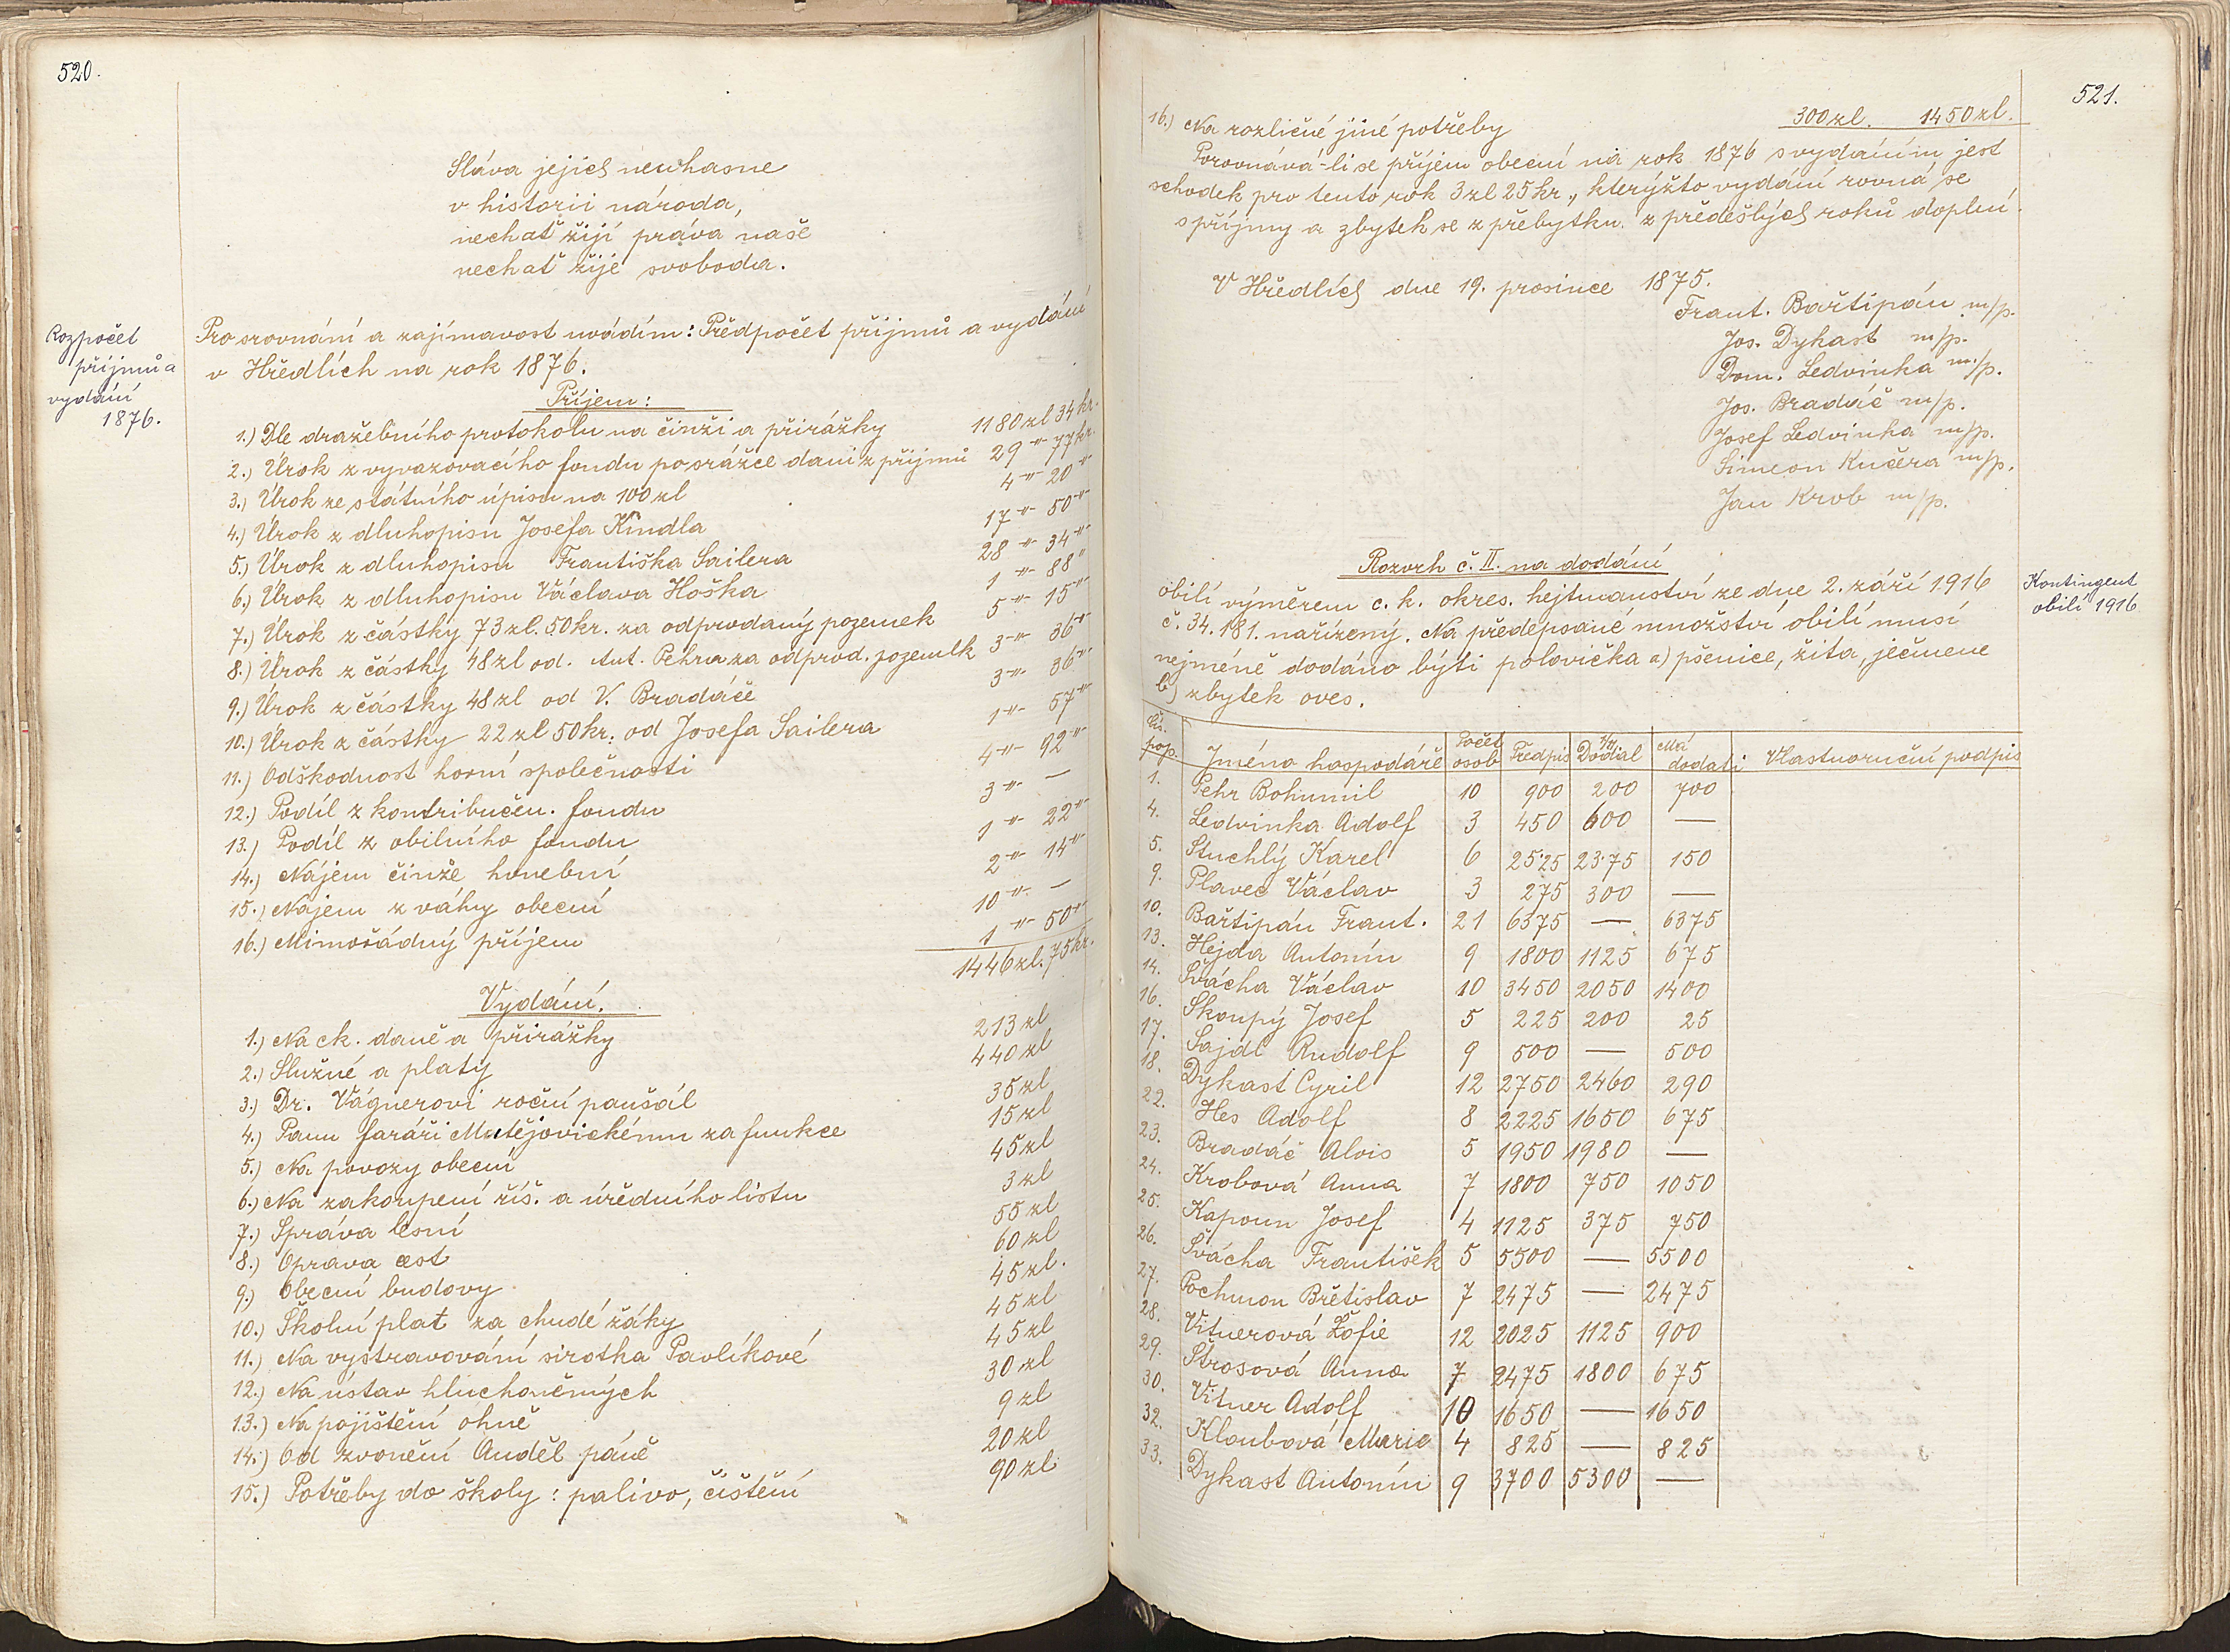 520.
Sláva jejich neuhasne
v historii národa,
nechať žijí práva naše
nechať žije svoboda.
Rozpočet
příjmů a
vydání
1876.
Pro srovnání a zajímavost uvádím: Předpočet příjmů a vydání
v Hředlích na rok 1876.
Příjem:
1.) Dle dražebního protokolu na činži a přirážky 1180 zl 34 kr.
2.) Úrok z vyvazovacího fondu po srážce dani z příjmů 29 -"- 77 kr.
3.) Úrok ze státního úpisu na 100 zl 4 -"- 20 -"-
4.) Úrok z dluhopisu Josefa Kindla 17 -"- 50 -"-
5.) Úrok z dluhopisu Františka Sailera 28 -"- 34 -"-
6.) Úrok z dluhopisu Václava Hoška 1 -"- 88 "
7.) Úrok z částky 73 zl. 50 kr. za odprodaný pozemek 5 -"- 15 -"-
8.) Úrok z částky 48 zl od. Ant. Pehra za odprod. pozemek 3 -"- 36 -"-
9.) Úrok z částky 48 zl od V. Bradáče 3 -"- 36 -"-
10.) Úrok z částky 22 zl 50 kr. od Josefa Sailera 1 -"- 57 -"-
11.) Odškodnost horní společnosti 4 -"- 92 -"-
12.) Podíl z kontribučen. fondu 3 -"- —
13.) Podíl z obilního fondu 1 -"- 22 -"-
14.) Nájem činže honební 2 -"- 14 -"-
15.) Nájem z váhy obecní 10 -"- —
16.) Mimořádný příjem 1 -"- 50 -"-
1446 zl. 75 kr.
Vydání.
1.) Na ck. daně a přirážky 213 zl
2.) Služné a platy 440 zl
3.) Dr. Vágnerovi roční paušál 35 zl
4.) Panu faráři Matějovickému za funkce 15 zl
5.) Na povozy obecní 45 zl
6.) Na zakoupení říš. a úředního listu 3 zl
7.) Správa lesní 55 zl
8.) Oprava cest 60 zl
9.) Obecní budovy 45 zl.
10.) Školní plat za chudé žáky 45 zl
11.) Na vystravování sirotka Pavlíkové 45 zl
12.) Na ústav hluchoněmých 30 zl
13.) Na pojištění ohně 9 zl
14.) Od zvonění Anděl páně 20 zl
15.) Potřeby do školy: palivo, čištění 90 zl
521.
16.) Na rozličné jiné potřeby 300 zl. 1450 zl.
Porovnává-li se příjem obecní na rok 1876 s vydáním jest
schodek pro tento rok 3 zl 25 kr., kterýžto vydání rovná se
s příjmy a zbytek se z přebytku z předešlých roků doplní.
V Hředlích dne 19. prosince 1875.
Frant. Bařtipán m/p.
Jos. Dykast m/p.
Dom. Ledvinka m/p.
Jos. Bradáč m/p.
Josef Ledvinka m/p.
Simeon Kučera m/p.
Jan Krob m/p.
Rozvrh č. II. na dodání
Kontingent
obilí 1916
obilí výměrem c. k. okres. hejtmanství ze dne 2. září 1916
č. 34.181. nařízený. Na předepsané množství obilí musí
nejméně dodáno býti polovička a) pšenice, žita, ječmene
b) zbytek oves.
Čís. pop. Jméno hospodáře Počet osob Předpis Dodal Má dodati Vlastnoruční podpis
1. Pehr Bohumil 10 900 200 700
4. Ledvinka Adolf 3 450 600 —
5. Stuchlý Karel 6 2525 2375 150
9. Plavec Václav 3 275 300 —
10. Bařtipán Frant. 21 6375 — 6375
13. Hejda Antonín 9 1800 1125 675
14. Švácha Václav 10 3450 2050 1400
16. Skoupý Josef 5 225 200 25
17. Sajdl Rudolf 9 500 — 500
18. Dykast Cyril 12 2750 2460 290
22. Hes Adolf 8 2225 1650 675
23. Bradáč Alois 5 1950 1980 —
24. Krobová Anna 7 1800 750 1050
25. Kapoun Josef 4 1125 375 750
26. Švácha František 5 5500 — 5500
27. Pochmon Břetislav 7 2475 — 2475
28. Vitnerová Žofie 12 2025 1125 900
29. Štrosová Anna 7 2475 1800 675
30. Vitner Adolf 10 1650 — 1650
32. Kloubová Marie 4 825 — 825
33. Dykast Antonín 9 3700 5300 —